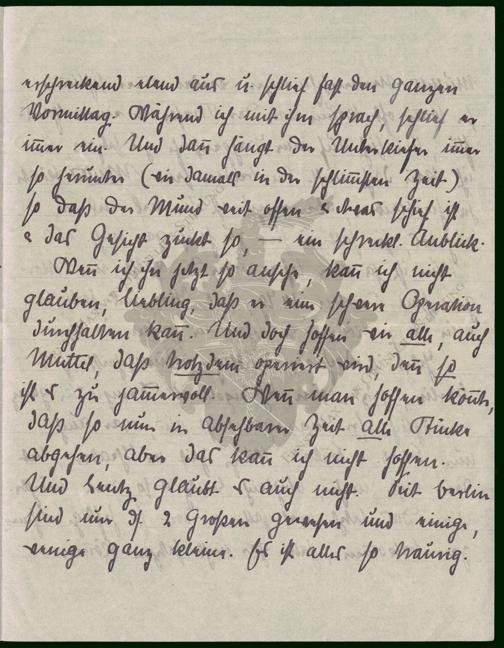 erschreckend elend aus u. schlief fast den ganzen
Vormittag. Während ich mit ihm sprach, schlief er
im̅er ein. Und dan̅ hängt der Unterkiefer im̅er
so herunter (wie damals in der schlim̅sten Zeit)
so daß der Mund weit offen & etwas schief ist
& das Gesicht zuckt so, — ein schreckl. Anblick.
Wen̅ ich ihn jetzt so ansehe, kan̅ ich nicht
glauben, Liebling, daß er eine schwere Operation
durchhalten kan̅. Und doch hoffen wir alle, auch
Muttel, daß trotzdem operiert wird, den̅ so
ist es zu jam̅ervoll. Wen̅ man hoffen kön̅te,
daß so nun in absehbarer Zeit alle Stücke
abgehen, aber das kan̅ ich nicht hoffen.
Und Lentz glaubt es auch nicht. Seit Berlin
sind nur d. 2 großen gewesen und einige,
wenige ganz kleine. Es ist alles so traurig.